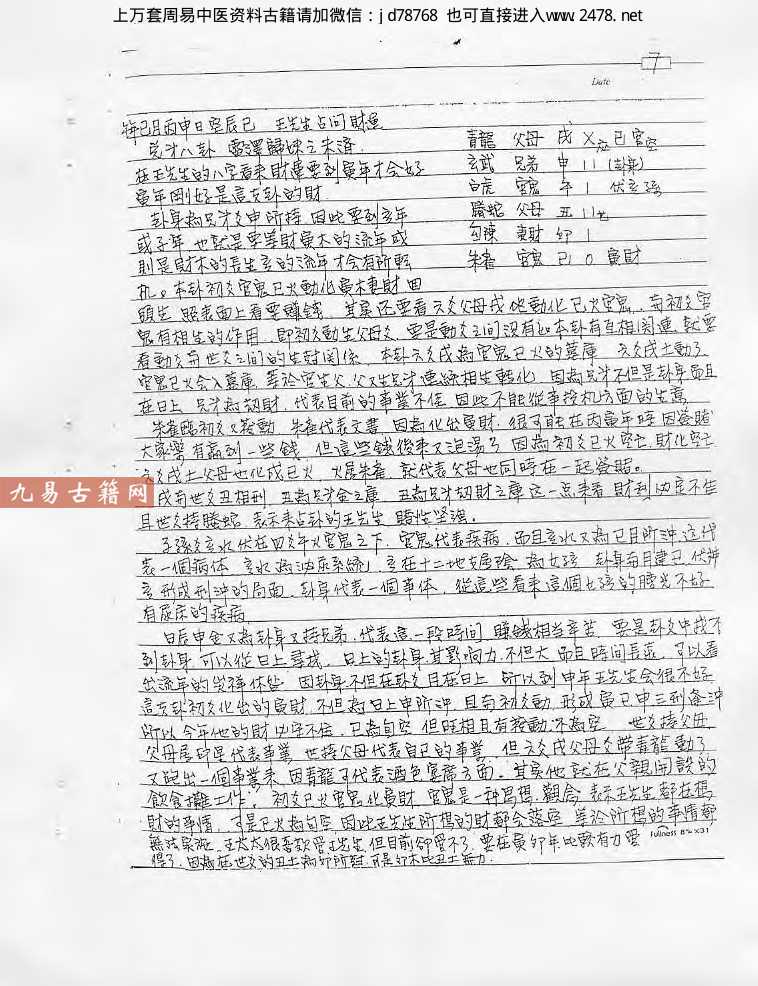 上万套周易中医资料古籍请加微信：jd78768 也可直接进入www.2478.net
7
Date
年己月丙申日空辰巳 王先生占问財運
兌卦八卦 雷澤歸妹之未濟
在王先生的八字看來財運要到寅年才会好
寅年刚好是這支卦的財
卦身為兄弟爻申所持 因此要到亥年
或子年 也就是要等財寅木的流年或
則是財木的長生亥的流年才会有所轉
机。本卦初爻官鬼巳火動化寅木妻財 回
青龍 父母 戌 X 應 巳官空
玄武 兄弟 申 11 (卦身)
白虎 官鬼 午 1 伏亥孫
螣蛇 父母 丑 11 世
勾陳 妻財 卯 1
朱雀 官鬼 巳 0 寅財
頭生 照表面上看要賺錢 其实还要看六爻父母戌也動化巳火官鬼 而初爻官
鬼有相生的作用 即初爻動生父母爻 要是動爻之间没有如本卦有互相関連 就要
看動爻与世爻之间的生尅関係 本卦六爻戌為官鬼巳火的墓庫 六爻戌土動了
官鬼巳火会入墓庫 等於官生父 父又生兄弟連続相生轉化 因為兄弟不但是卦身而且
在日上 兄弟為刼財 代表目前的事業不佳 因此不能從事投机方面的生意
朱雀臨初爻又發動 朱雀代表文書 因為化出寅財 很可能在丙寅年時因簽賭
大家樂有贏到一些錢 但這些錢後來又泡湯了 因為初爻巳火空亡 財化空亡
六爻戌土父母也化成巳火 火居朱雀 就代表父母也同時在一起簽賭。
戌与世爻丑相刑 丑為兄弟金之庫 丑為兄弟刼財之庫 这一点來看 財利必定不佳
且世爻持螣蛇 表示来占卦的王先生 賭性坚强。
子孫爻亥水伏在四爻午火官鬼之下 官鬼代表疾病 而且亥水又為巳月所沖 这代
表一個病体 亥水為泌尿系統 亥在十二地支属陰 為女孩 卦身与月建巳 伏神
亥形成刑沖的局面 卦身代表一個事体 從這些看來這個女孩的膀光不好
有尿床的疾病
日辰申金又為卦身又持兄弟 代表這一段時间 賺錢相当辛苦 要是卦爻中找不
到卦身 可以從日上尋找 日上的卦身其影响力 不但大 而且時间長遠 可以看
出流年的発祥休咎 因卦身不但在卦爻且在日上 所以到申年王先生会很不好
這支卦初爻化出的寅財 不但為日上申所沖 且与初爻動 形成寅巳申三刑夆沖
所以今年他的財必守不住 巳為旬空 但旺相且有發動 不為空 世爻持父母
父母居卦里代表事業 世持父母代表自己的事業 但六爻戌父母爻帶青龍動了
又跑出一個事業來 因青龍可代表酒色宴席方面。其实他就在父親開設的
飲食攤工作。初爻巳火官鬼化寅財 官鬼是一种思想 觀念 表示王先生都在想
財的事情 可是巳火為旬空 因此王先生所想的財都会落空 等於所想的事情都
無法实現 王太太很喜欢愛王先生 但目前卻愛不了 要在寅卯年比較有力愛
得了 因為在世爻的丑土為卯所尅 可是卯木比丑土無力
fullness B5 X31
九易古籍网